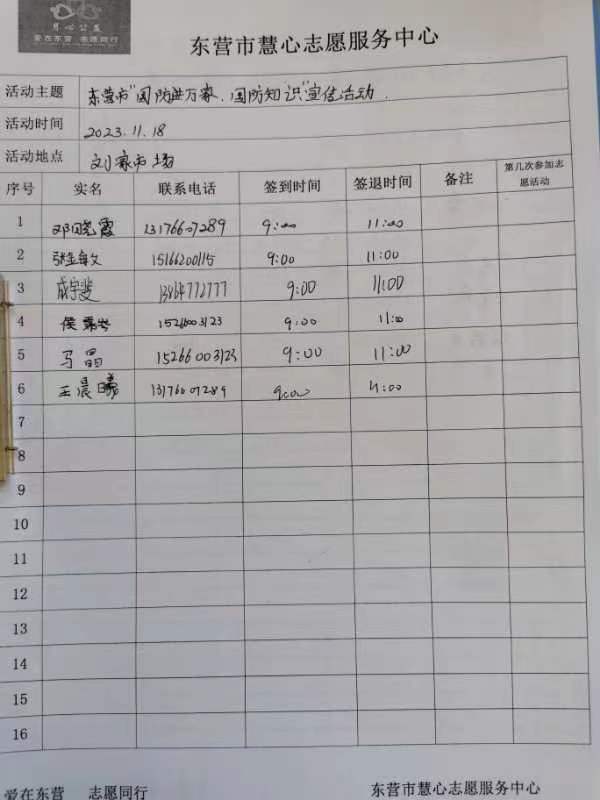 身心公益
爱在东营 志愿同行
东营市慧心志愿服务中心
活动主题 东营市"国防进万家、国防知识"宣传活动
活动时间 2023.11.18
活动地点 刘家市场
序号 实名 联系电话 签到时间 签退时间 备注 第几次参加志愿活动
1 邓晓霞 13176607289 9:00 11:00
2 张金敏 15166200115 9:00 11:00
3 9:00 11:00
4 侯 15266003123 9:00 11:00
5 马晶 15266003123 9:00 11:00
6 王晨曦 13176607289 9:00 11:00
7
8
9
10
11
12
13
14
15
16
爱在东营 志愿同行 东营市慧心志愿服务中心